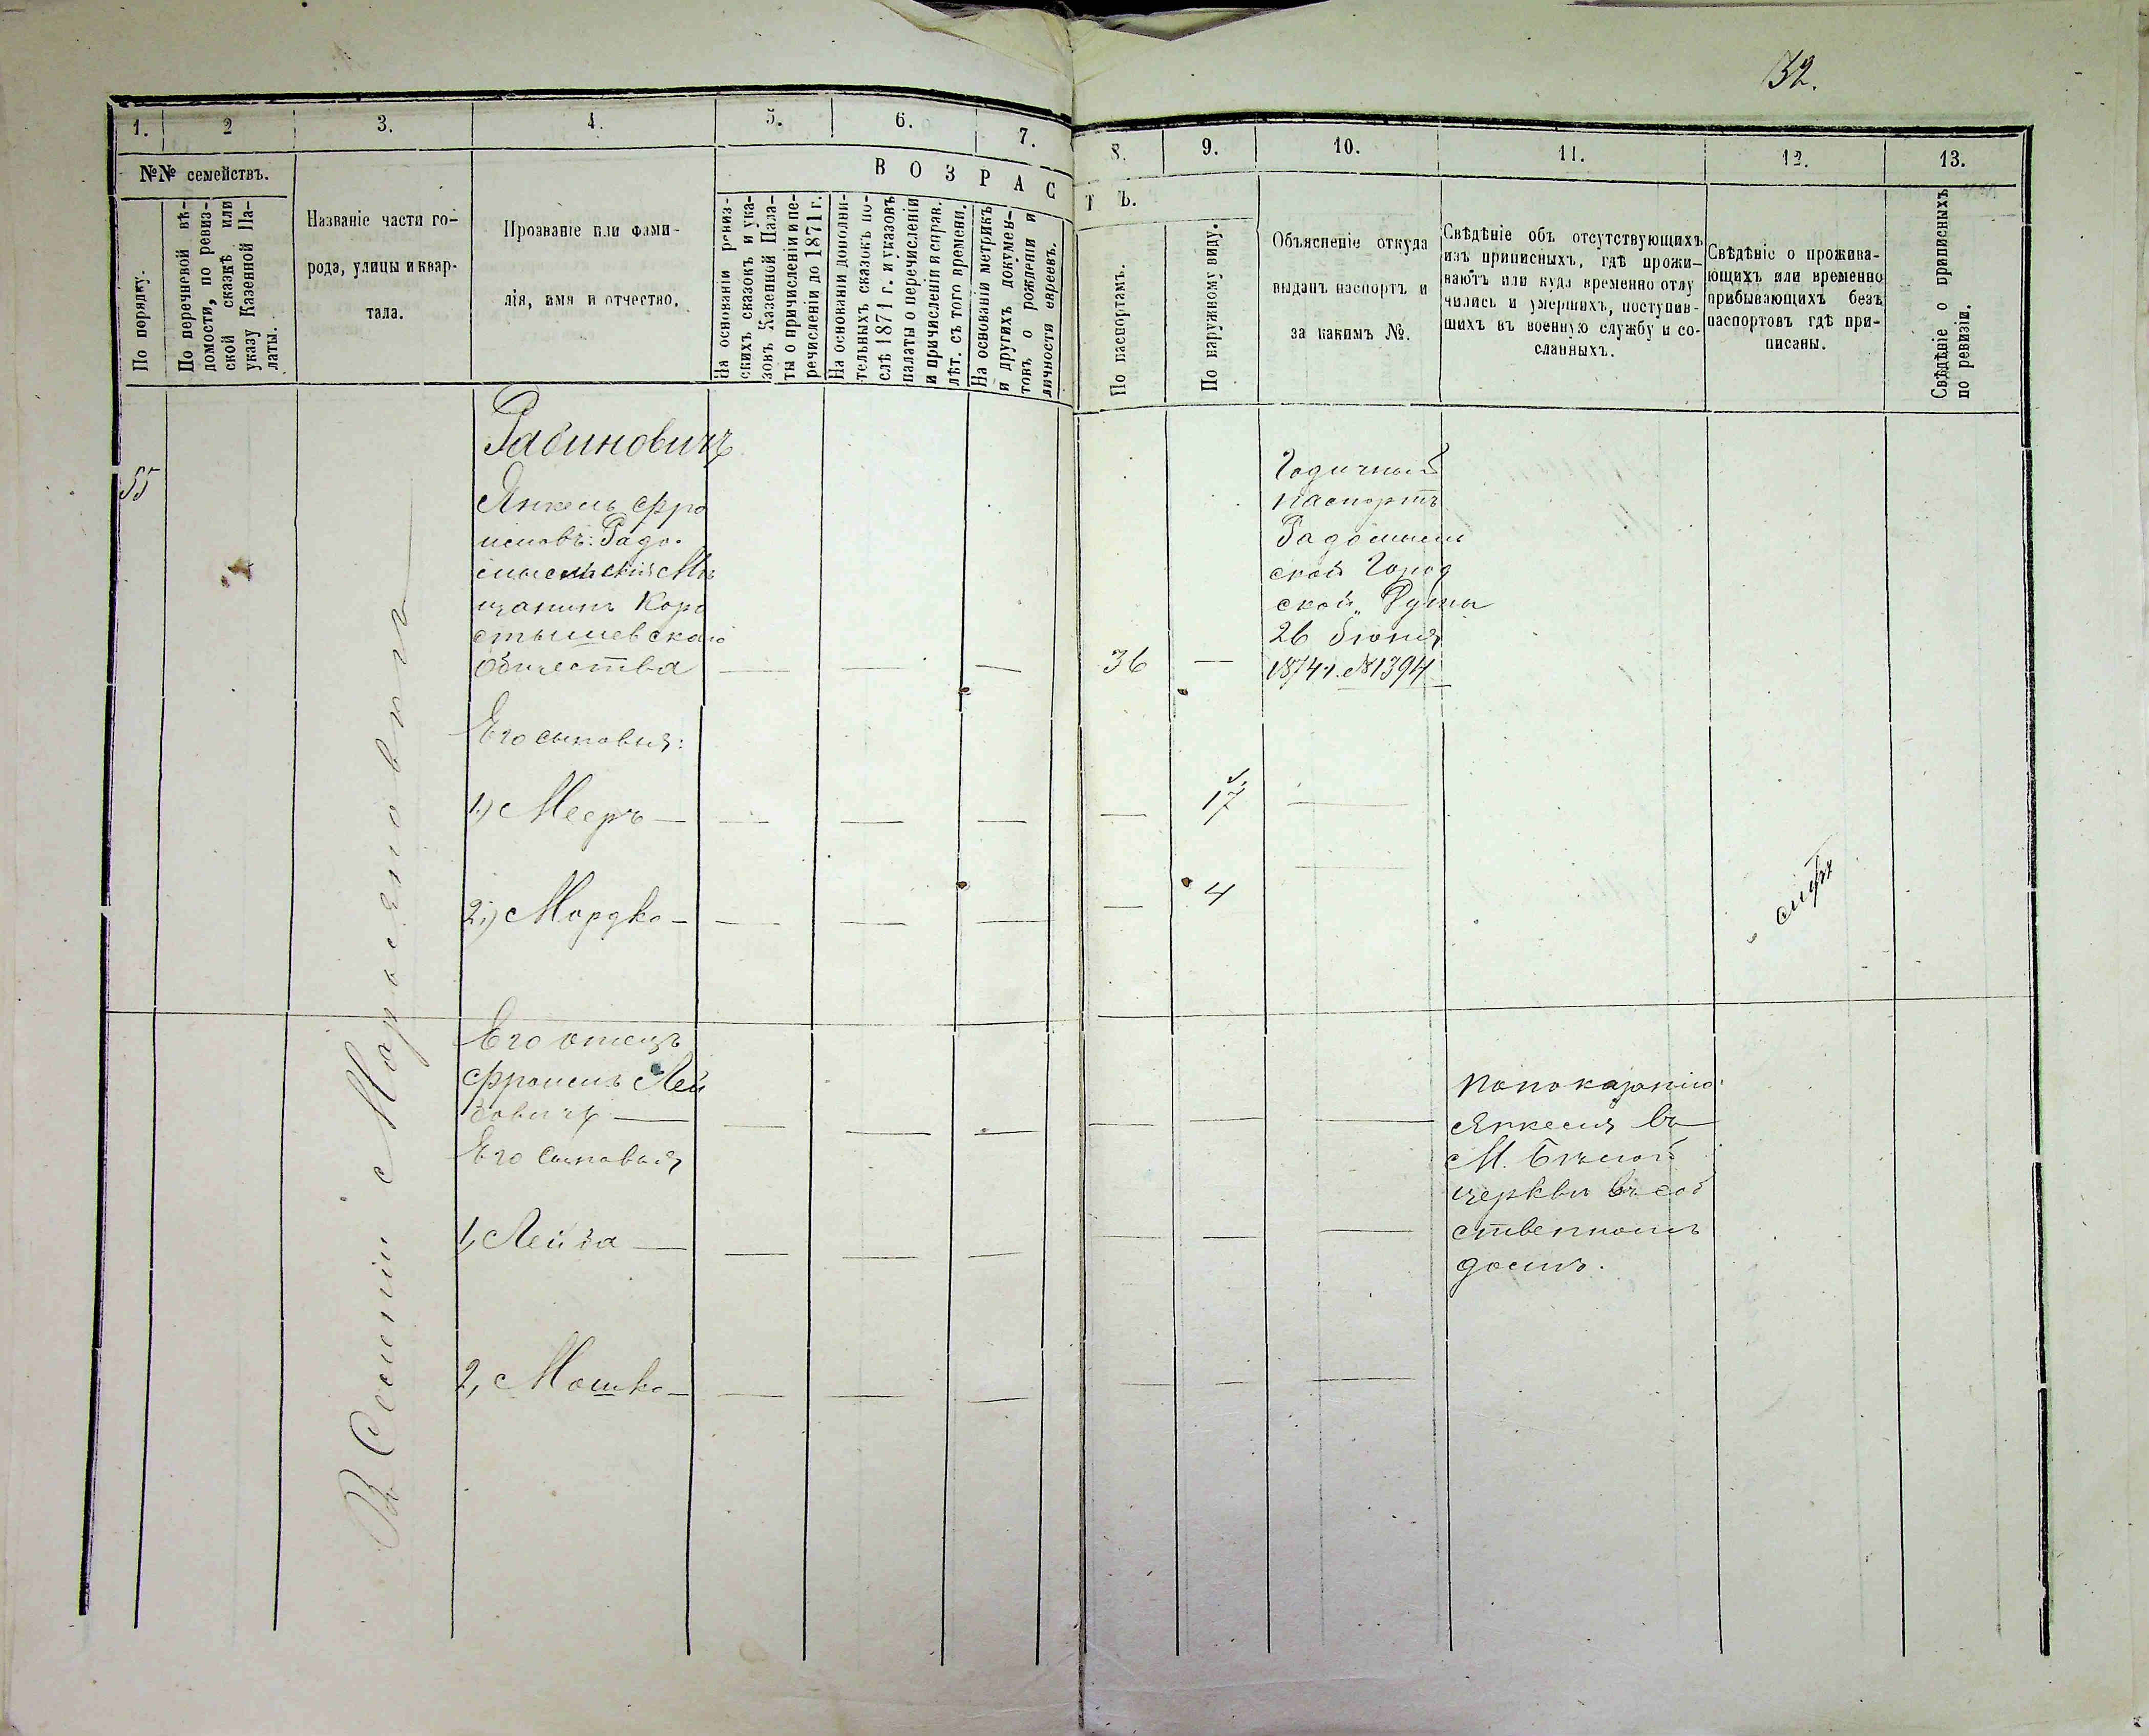 32.
1.
2
3.
4.
5.
6.
7.
8.
9.
10.
11.
12.
13.
№№ семействъ.
По порядку.
По перечневой вѣ-
домости, по ревиз-
ской сказкѣ или
указу Казенной Па-
латы.
Названіе части го-
рода, улицы и квар-
тала.
Прозваніе или фами-
лія, имя и отчество.
В О З Р А С
Т Ъ.
На основаніи ревиз-
скихъ сказокъ и ука-
зовъ Казенной Пала-
ты о причисленіи и пе-
речисленіи до 1871 г.
На основаніи дополни-
тельныхъ сказокъ по-
слѣ 1871 г. и указовъ
палаты о перечисленіи
и причисленіи и справ.
лѣт. съ того времени.
На основаніи метрикъ
и другихъ докумен-
товъ о рожденіи и
личности евреевъ.
По паспортамъ.
По наружному виду.
Объясненіе откуда
выданъ паспортъ и
за какимъ №.
Свѣдѣніе объ отсутствующихъ
изъ приписныхъ, гдѣ прожи-
ваютъ или куда временно отлу
чились и умершихъ, поступив-
шихъ въ военную службу и со-
сланныхъ.
Свѣдѣніе о прожива-
ющихъ или временно
прибывающихъ безъ
паспортовъ гдѣ при-
писаны.
Свѣдѣніе о приписныхъ
по ревизіи.
55
Рабиновичъ
Янкель Фро
имовъ: Радо-
мысльскій Мѣ
щанинъ Коро
стышевскаго
общества
36
Годичный
паспортъ
Радомысль
ской Город
ской Думы
26 Іюня
1874 г. №1394
Его сыновья:
1,) Мееръ
17
2,) Мордко
4
Его отецъ
Фроимъ Лей
бовичъ
Его сыновья
1, Лейба
2, Мошко
По показанію
Янкеля въ
М. Бѣлой
церкви въ соб
ственномъ
домѣ.
Въ Селеніи